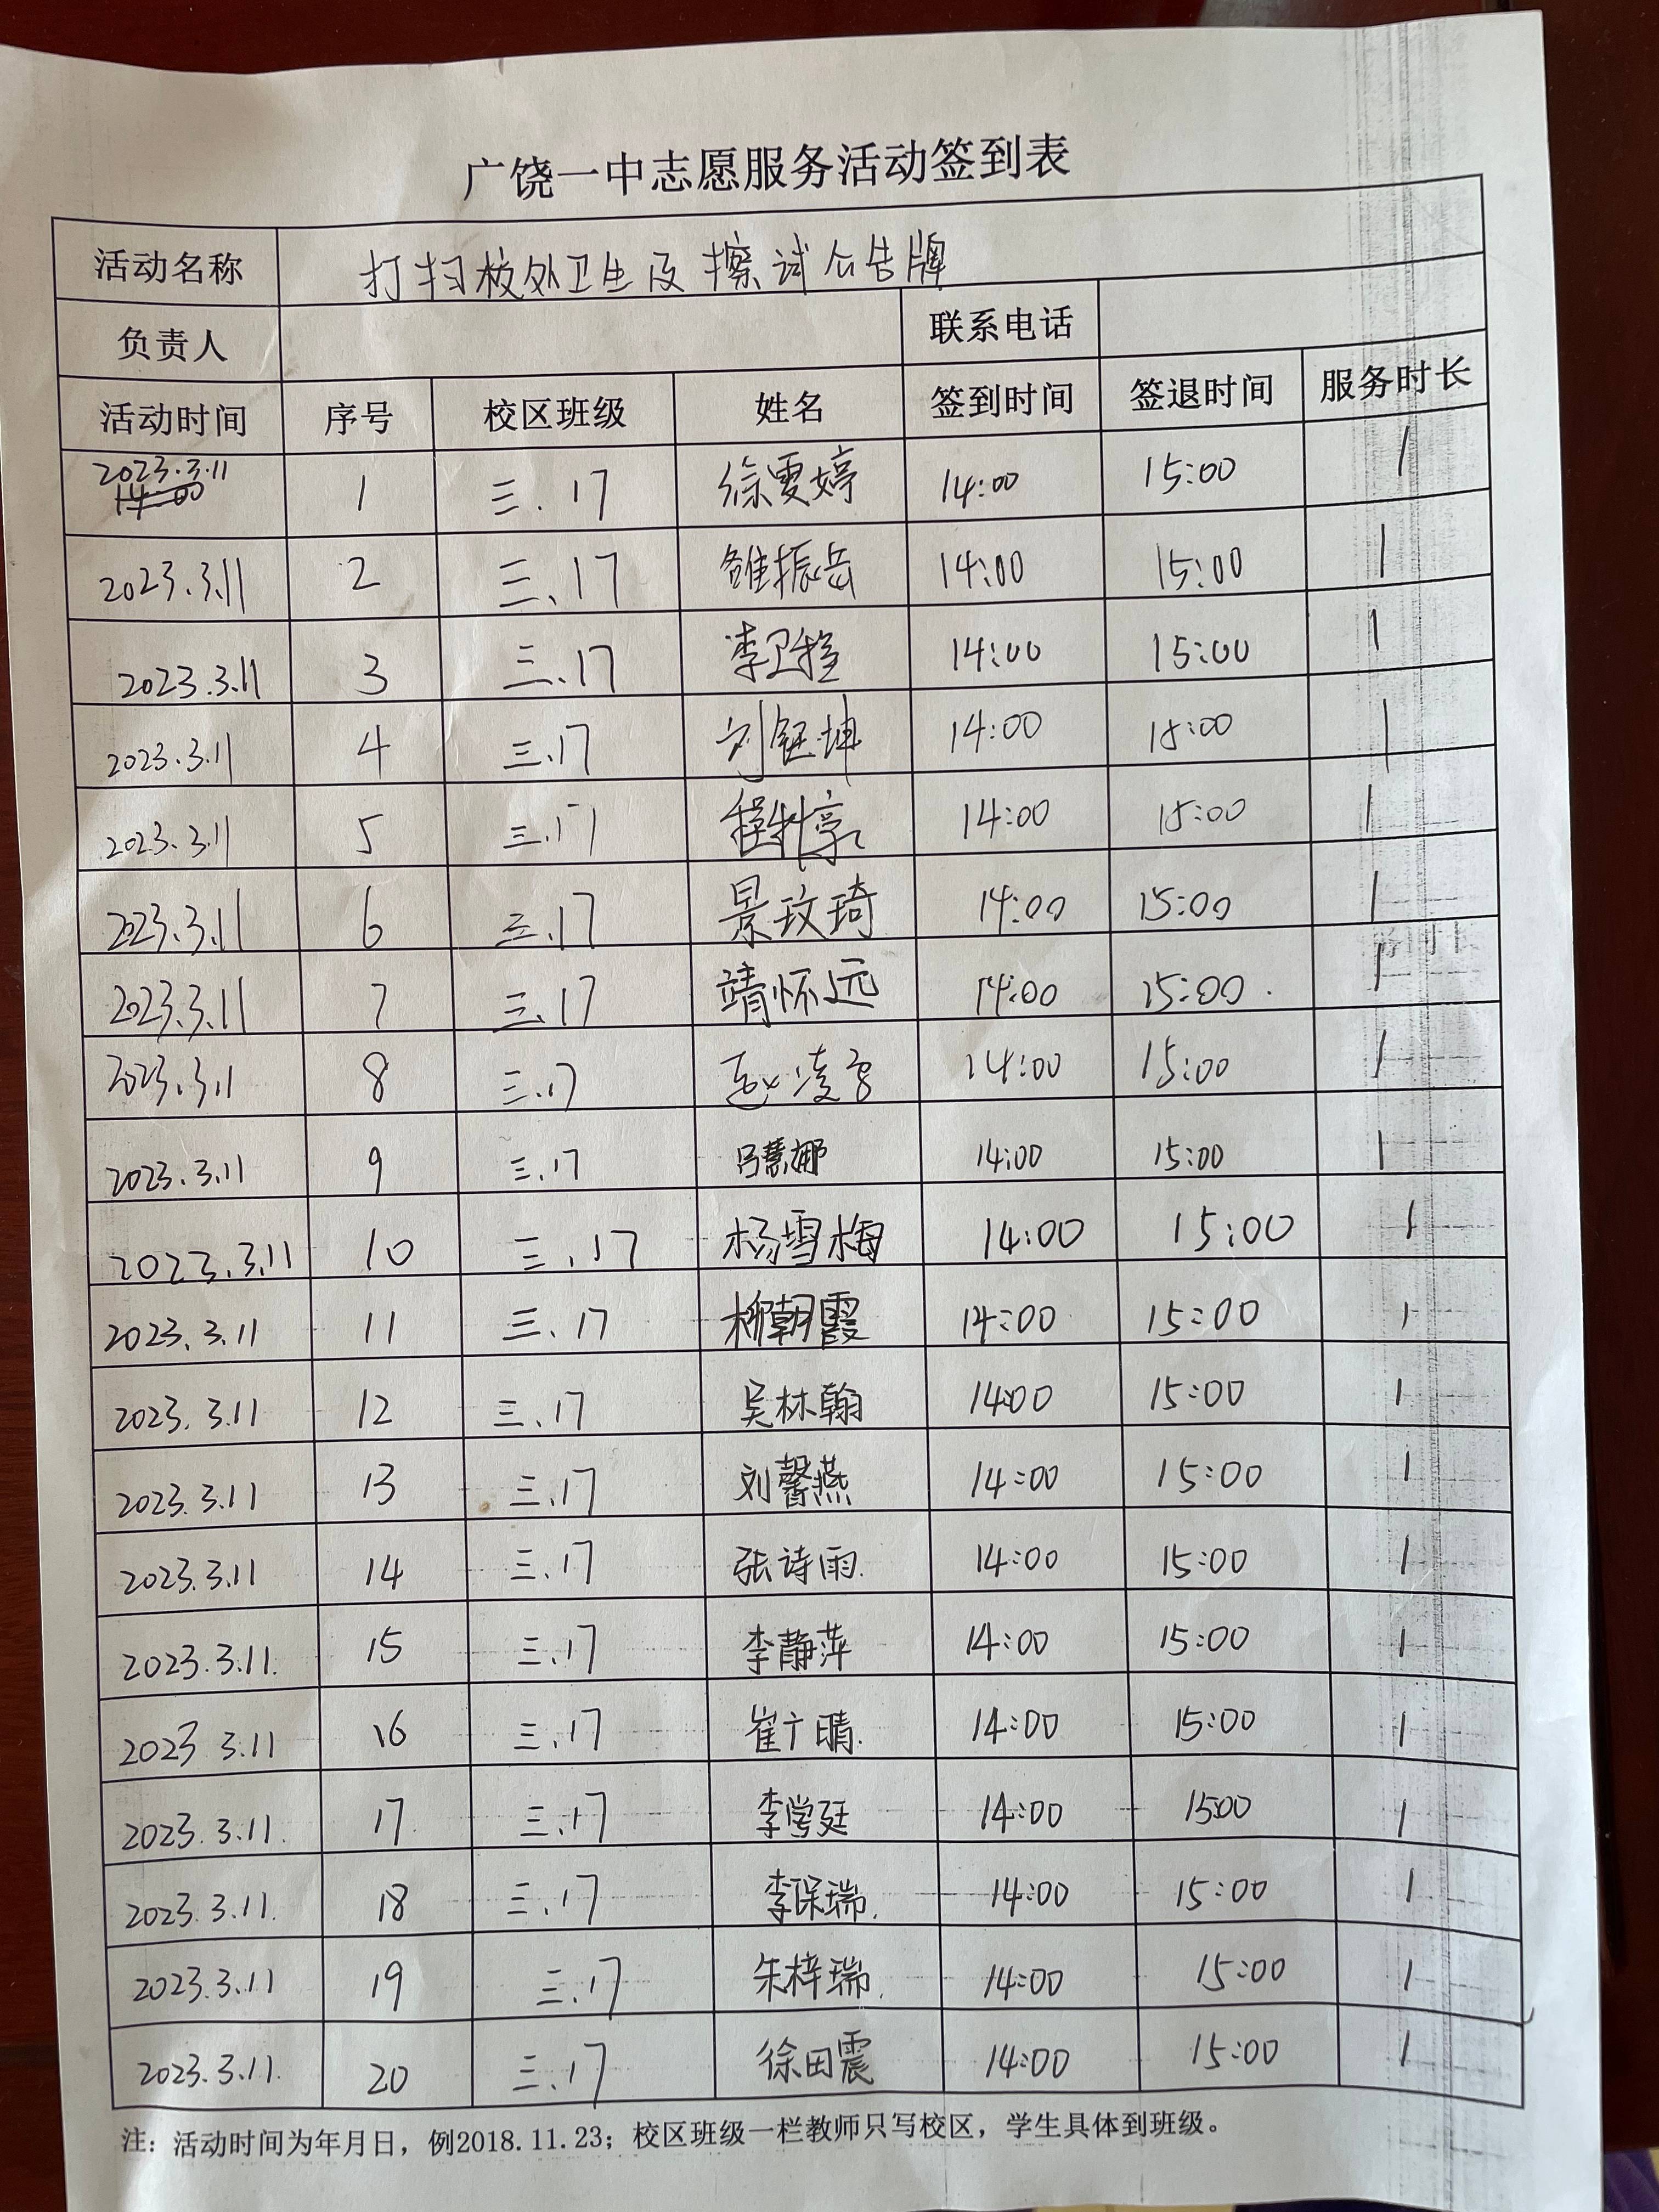 广饶一中志愿服务活动签到表
活动名称 打扫校外卫生及擦试公告牌
负责人 联系电话
活动时间 序号 校区班级 姓名 签到时间 签退时间 服务时长
2023.3.11 14:00 1 三.17 徐雯婷 14:00 15:00 1
2023.3.11 2 三.17 雒振岳 14:00 15:00 1
2023.3.11 3 三.17 李卫 14:00 15:00 1
2023.3.11 4 三.17 刘钰坤 14:00 15:00 1
2023.3.11 5 三.17 14:00 15:00 1
2023.3.11 6 三.17 景玟琦 14:00 15:00 1
2023.3.11 7 三.17 靖怀远 14:00 15:00 1
2023.3.11 8 三.17 赵凌 14:00 15:00 1
2023.3.11 9 三.17 吕慧娜 14:00 15:00 1
2023.3.11 10 三.17 杨雪梅 14:00 15:00 1
2023.3.11 11 三.17 柳朝霞 14:00 15:00 1
2023.3.11 12 三.17 吴林翰 14:00 15:00 1
2023.3.11 13 三.17 刘馨燕 14:00 15:00 1
2023.3.11 14 三.17 张诗雨. 14:00 15:00 1
2023.3.11. 15 三.17 李静萍 14:00 15:00 1
2023 3.11 16 三.17 崔广晴. 14:00 15:00 1
2023.3.11. 17 三.17 李学廷 14:00 1500 1
2023.3.11. 18 三.17 李保瑞. 14:00 15:00 1
2023.3.11 19 三.17 朱梓瑞. 14:00 15:00 1
2023.3.11. 20 三.17 徐田震 14:00 15:00 1
注：活动时间为年月日，例2018.11.23；校区班级一栏教师只写校区，学生具体到班级。